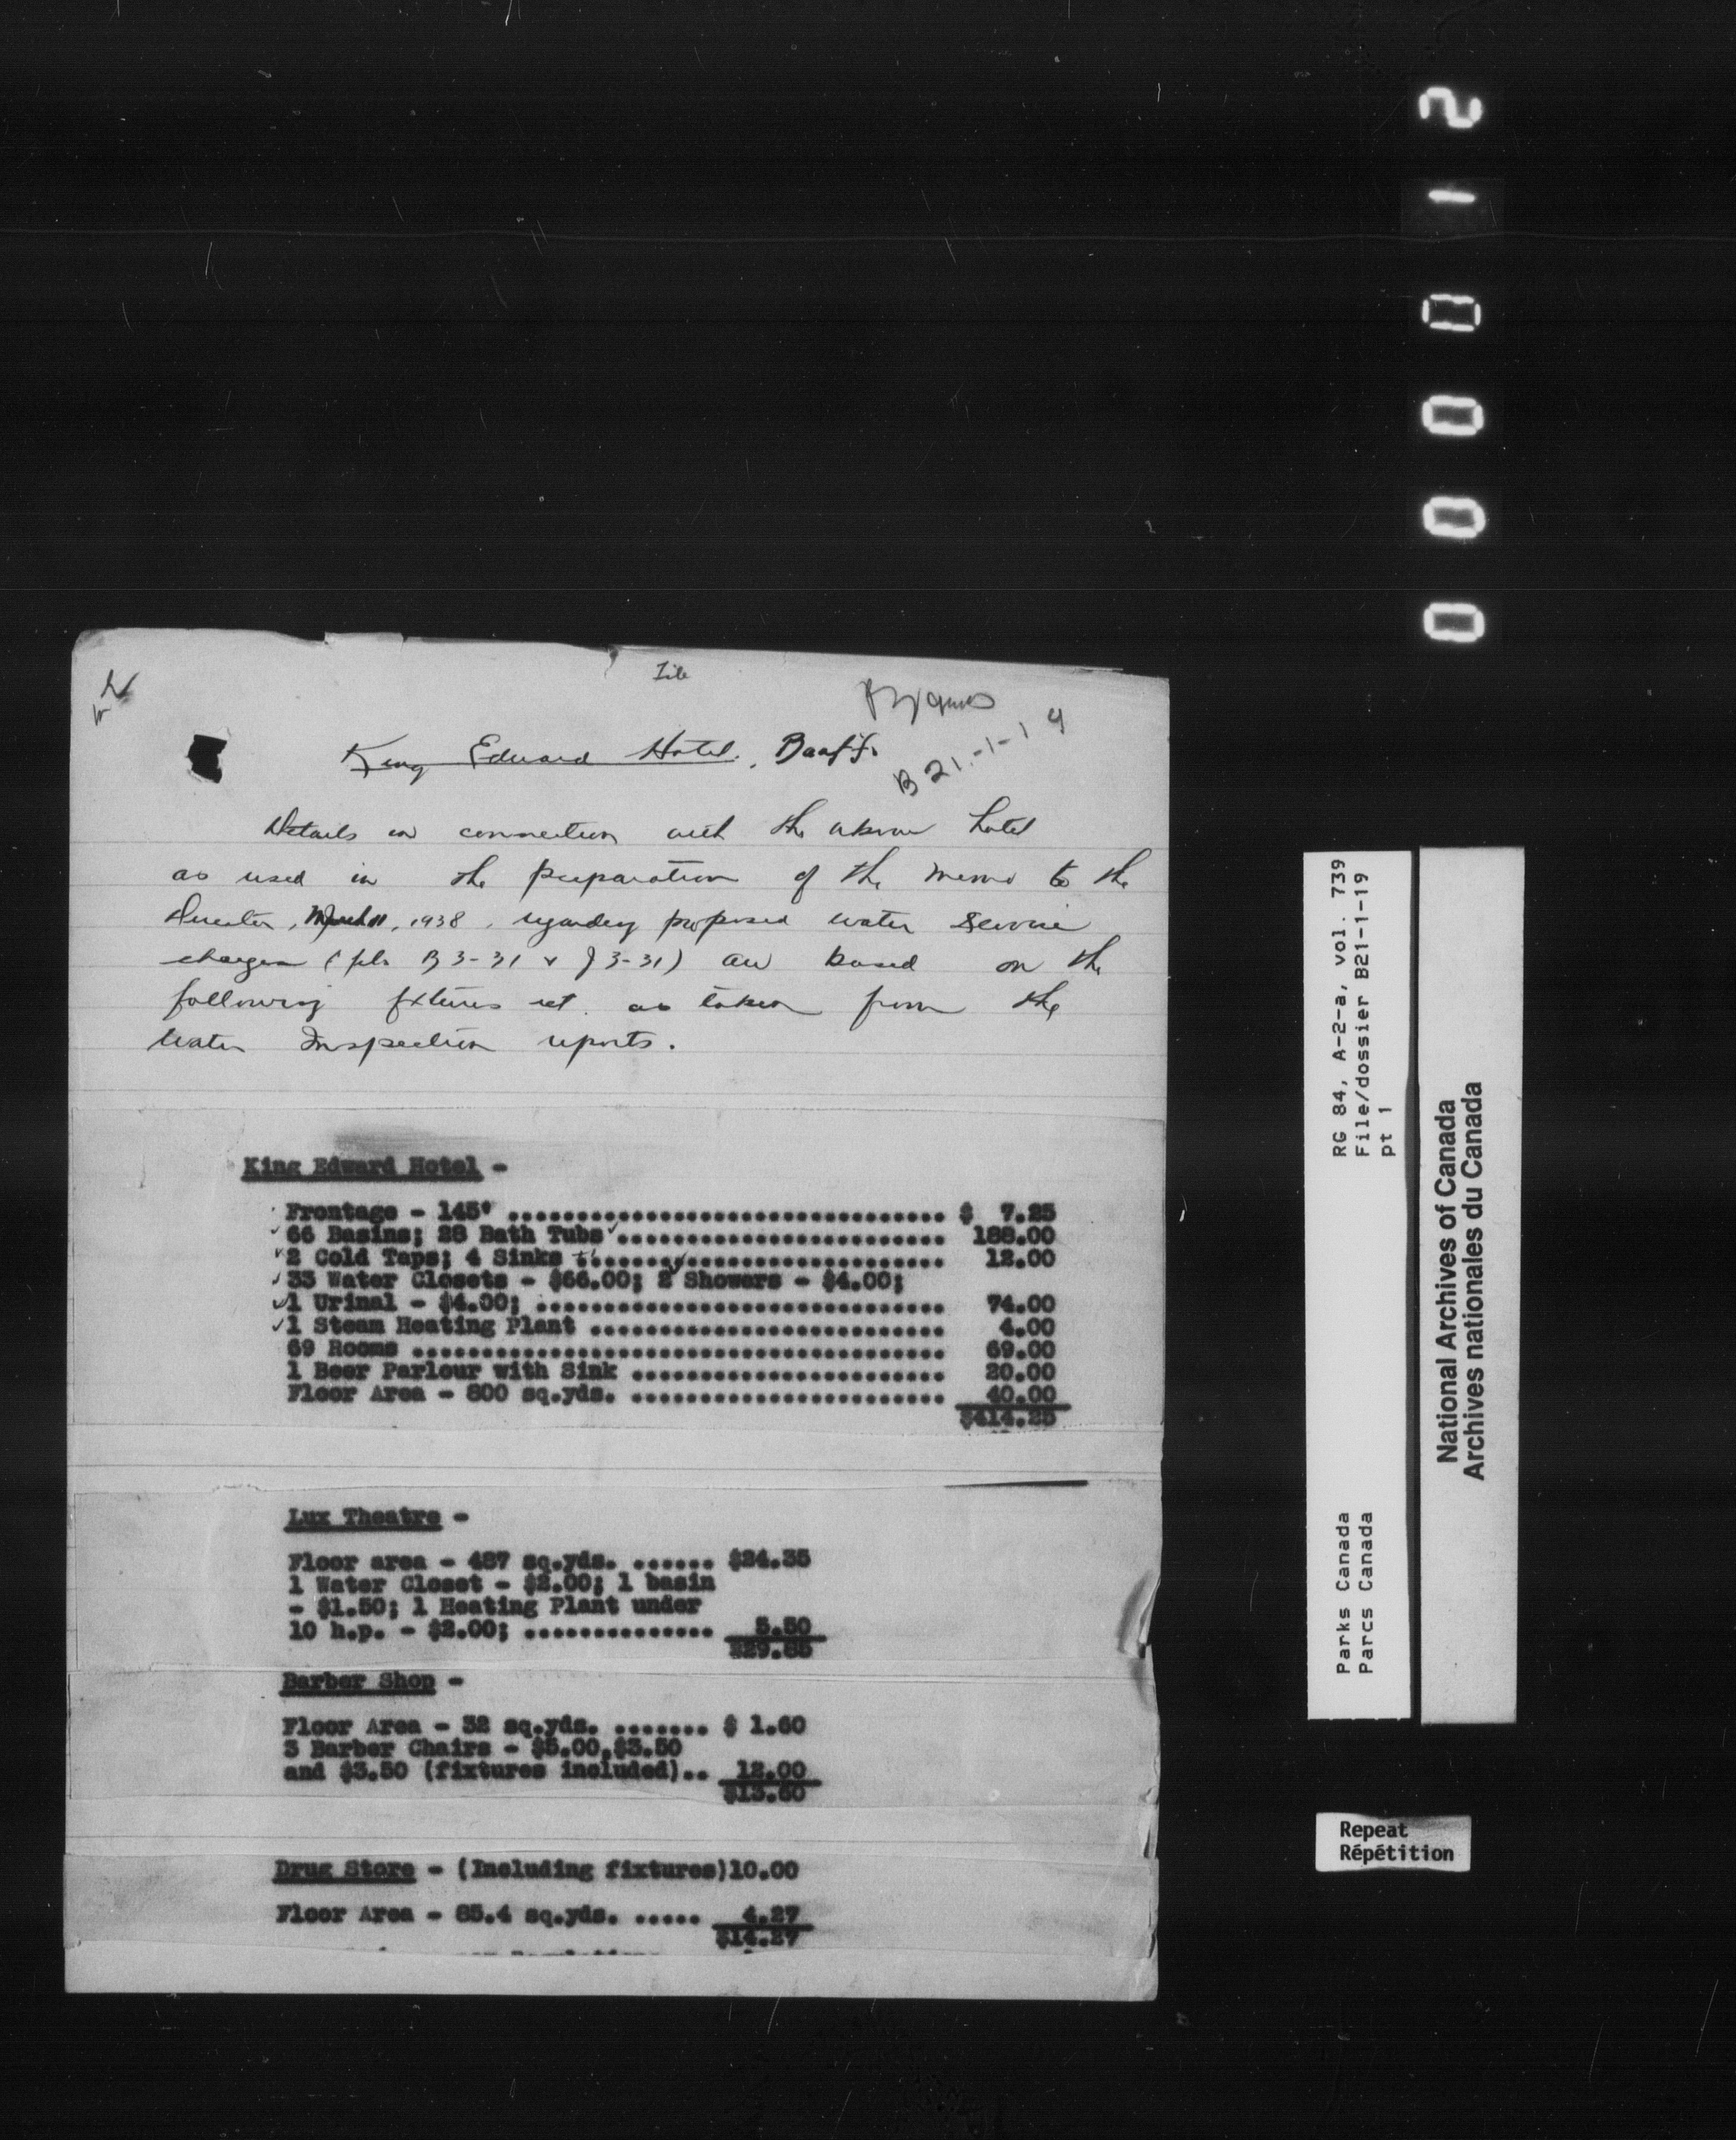 File
King Edward Hotel, Banff.
B 21-1-19
Details in connection with the above hotel
as used in the preparation of the memo to the
Director, March 11, 1938, regarding proposed water service
charges (fls B 3-31 & J 3-31) are based on the
following fixtures ect. as taken from the
Water Inspection reports.
King Edward Hotel -
Frontage - 145' ................................ $ 7.25
66 Basins; 28 Bath Tubs ........................ 188.00
2 Cold Taps; 4 Sinks ........................... 12.00
33 Water Closets - $66.00; 2 Showers - $4.00;
1 Urinal - $4.00; .............................. 74.00
1 Steam Heating Plant .......................... 4.00
69 Rooms ....................................... 69.00
1 Beer Parlour with Sink ....................... 20.00
Floor Area - 800 sq.yds. ....................... 40.00
$414.25
Lux Theatre -
Floor area - 487 sq.yds. ...... $24.35
1 Water Closet - $2.00; 1 basin
- $1.50; 1 Heating Plant under
10 h.p. - $2.00; .............. 5.50
$29.85
Barber Shop -
Floor Area - 32 sq.yds. ....... $ 1.60
3 Barber Chairs - $5.00,$3.50
and $3.50 (fixtures included).. 12.00
$13.60
Drug Store - (Including fixtures)10.00
Floor Area - 85.4 sq.yds. ..... 4.27
$14.27
000012
RG 84, A-2-a, vol. 739
File/dossier B21-1-19
pt 1
Parks Canada
Parcs Canada
National Archives of Canada
Archives nationales du Canada
Repeat
Répétition